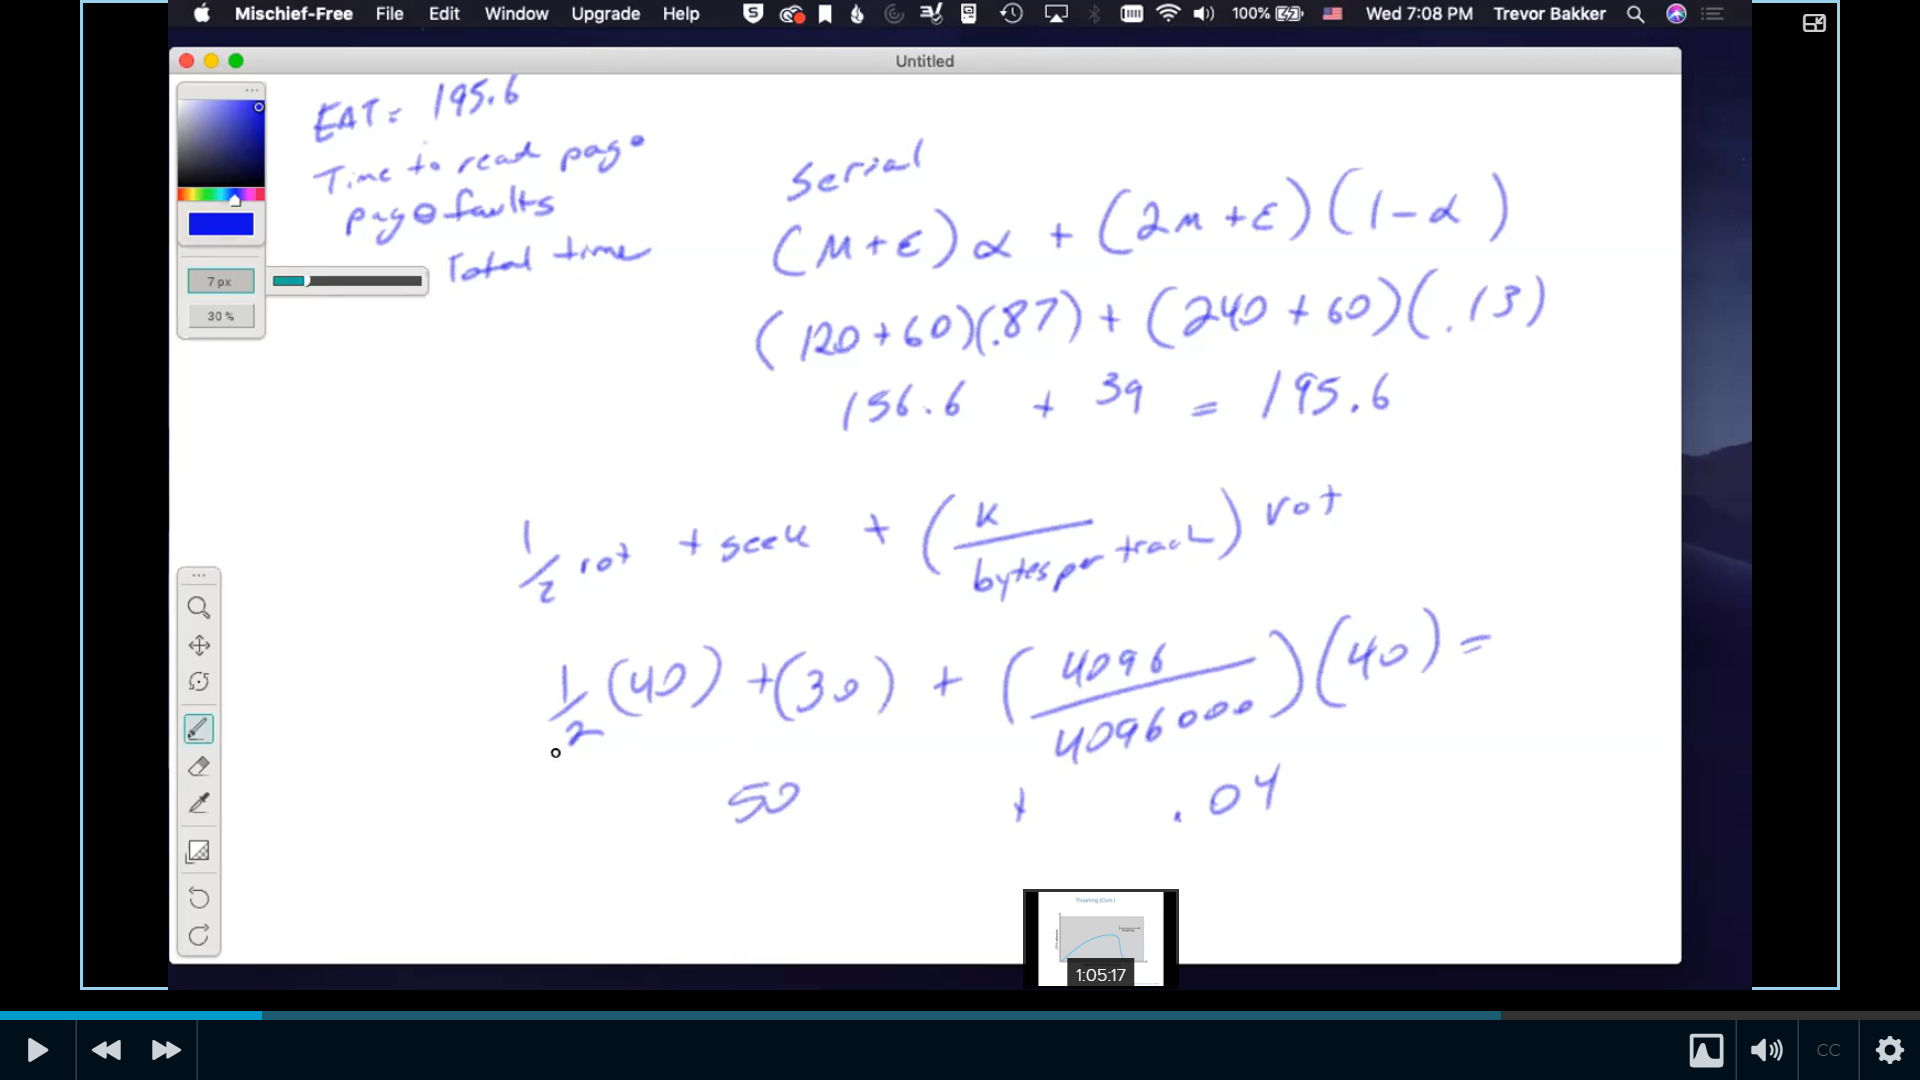 Mischief-Free File Edit Window Upgrade Help 100% Wed 7:08 PM Trevor Bakker
Untitled
EAT = 195.6
Time to read page
page faults
Total time
7 px
30 %
Serial
(M+ε)α + (2M+ε)(1-α)
(120+60)(.87) + (240+60)(.13)
156.6 + 39 = 195.6
1/2 rot + seek + (K / bytes per track) rot
1/2 (40) + (30) + (4096 / 4096000) (40) =
50 + .04
Thrashing (Cont.)
1:05:17
CC